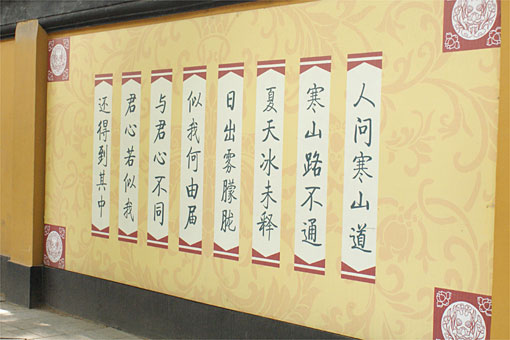 人问寒山道
寒山路不通
夏天冰未释
日出雾朦胧
似我何由届
与君心不同
君心若似我
还得到其中